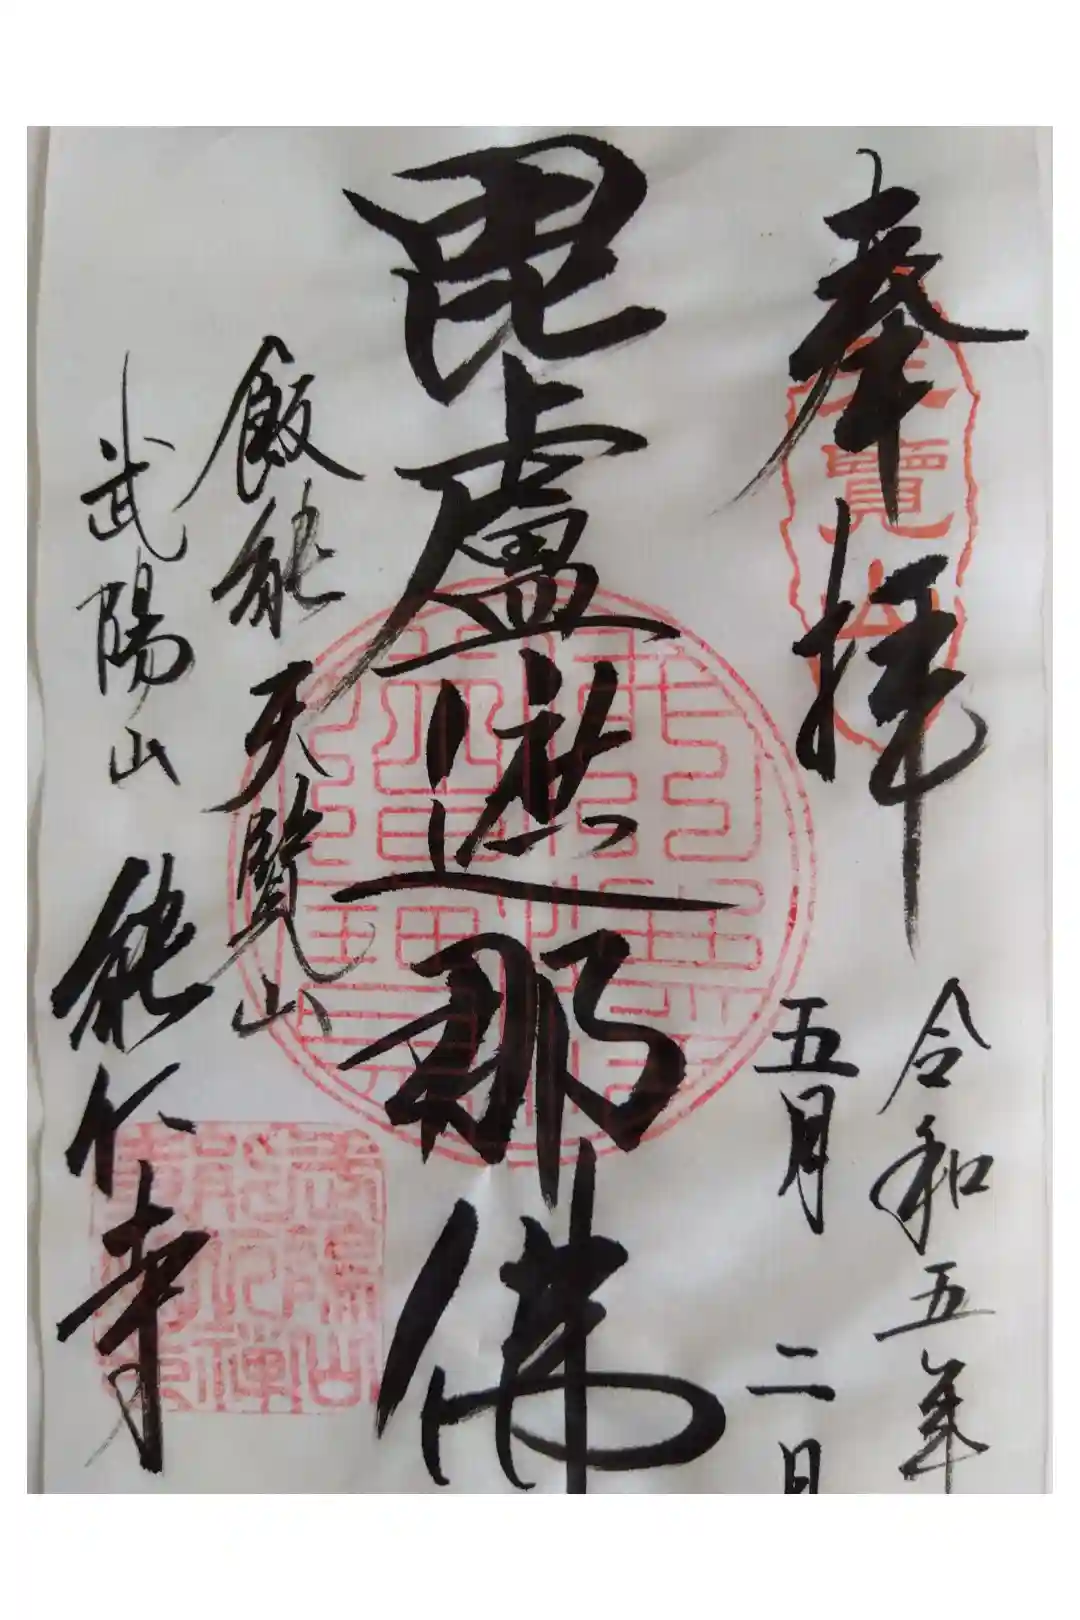 奉拝
令和五年
五月二日
毘盧遮那佛
飯能天覧山
武陽山能仁寺
天覽山